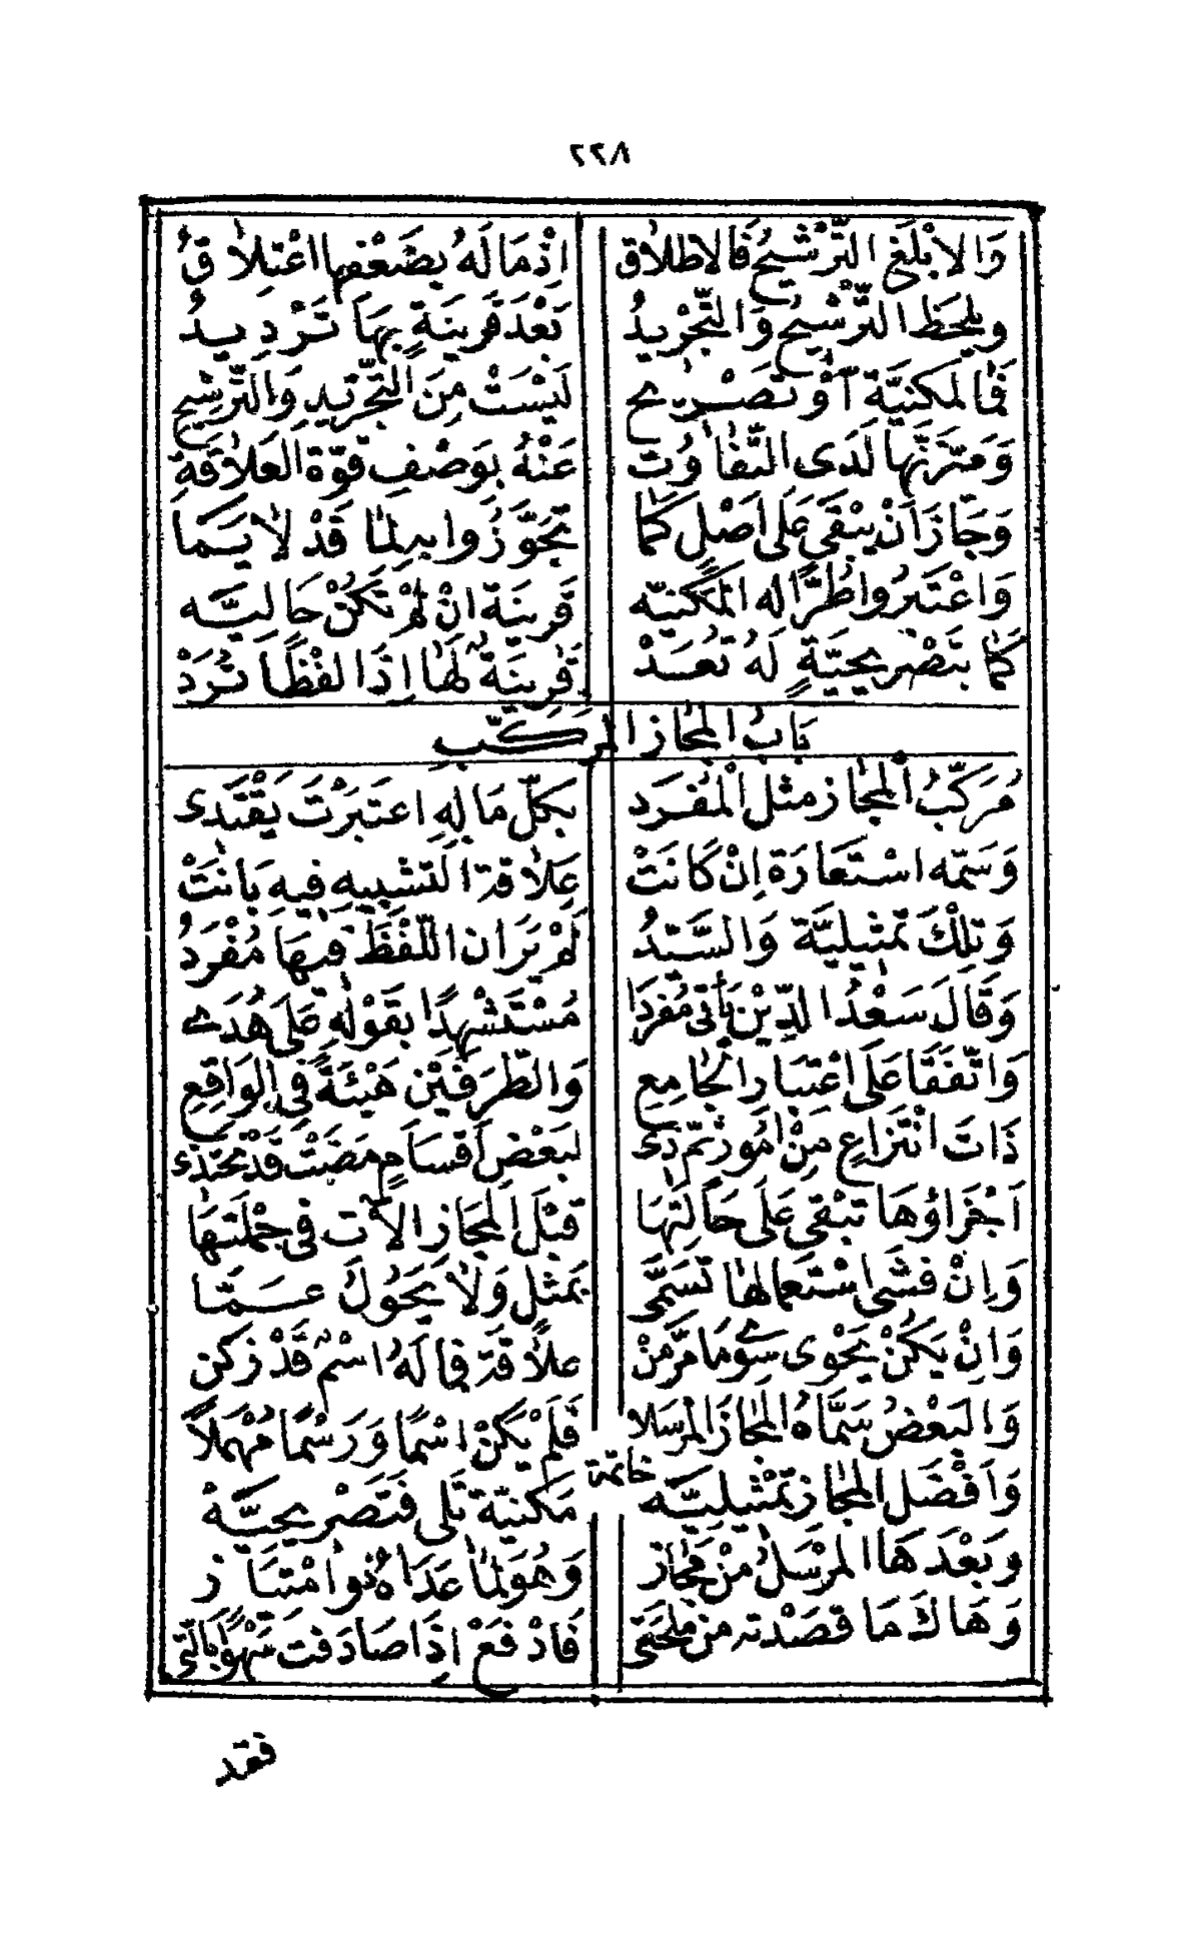 ٢٢٨
وَالابْلَغ التَّرْشيحُ فَالاطلاق اذْمَا لَهُ يضعْفها اعْتِلاقُ
ويلحظ التّرشيح وَالتّجْريدُ بَعْدَ قَرينَةٍ بِهَا تَرْدِيدُ
فِى المكنيّة أوْ تصْريح لَيْسَتْ مِنَ التّجريدِ وَالتّرشيح
وَمَيّزَنها لَدى التّفاوُت عَنْهُ بوَصْفِ قوّة العَلاقَةِ
وَجَازَ انْ يبْقى عَلى اصْل كما تجَوّزُوا به لما قَدْ لا يَسَما
وَاعْتَبرُوا طُرّا له المكنيّه قَرينَة انْ لمْ تكنْ حَاليَّه
كما بتَصْريحيَّةٍ لَهُ تُعَدْ قرينَة لَها اِذَا لفْظًا تُرَدْ
بَابُ المجَاز المركّب
مُركّبُ المجاز مثل المفْرَد بكلّ مَا لهِ اعتَبَرْتَ يَقْتَدى
وَسَمّه اسْتعَارَة اِنْ كَانَتْ عِلاقة التشبيهِ فيهِ بَانَتْ
وَتِلْكَ تمثيليَّة وَالسَّيّدُ لَمْ يَرَ ان اللّفْظَ فيهَا مُفْرَدُ
وَقَالَ سَعْدُ الدّيْن يَأتى مُفْرَدَا مُسْتَشْهِدًا بقَوْلِه عَلى هُدَى
وَاتّفَقَا عَلى اعْتبَار الجامِعِ وَالطّرَفَيْن هَيْئَةً فِي الوَاقِعِ
ذَاتَ انْتزاعٍ مِنْ أمُور لبَعْضِ أقسَامٍ مَضَتْ قَدْ تحْتذى
اجْزاؤُهَا تبْقى عَلى حَالَتهَا قبْلَ المجَاز الآت فى جُمْلَتهَا
وَاِنْ فشَى اسْتعمالها تسَمَّى بمثلٍ وَلا يَحُولُ عَمَّا
وَانْ يَكُنْ يَحْوى سِوى مَا مَرّ مِنْ علاقَة فما لَهُ اسْم قَدْ زكن
وَالبَعْضُ سَمَّاهُ المجازَ المُرسَلا فَلَمْ يَكُنْ اسْمًا وَرَسْمًا مُهْمَلًا
خاتمة
وَاَفْضَل المجاز تمْثيليَّه مَكنيّة تَلى فتَصْريحيَّهْ
وبَعْدَهَا المرْسَلُ مِنْ مجَاز وَهُوَ لما عَدَاهُ ذُو امْتيَاز
وَهَاكَ مَا قصَدْته من فَادْفعْ اِذَا صَادَفت سَهْوًا بالّتى
فقد